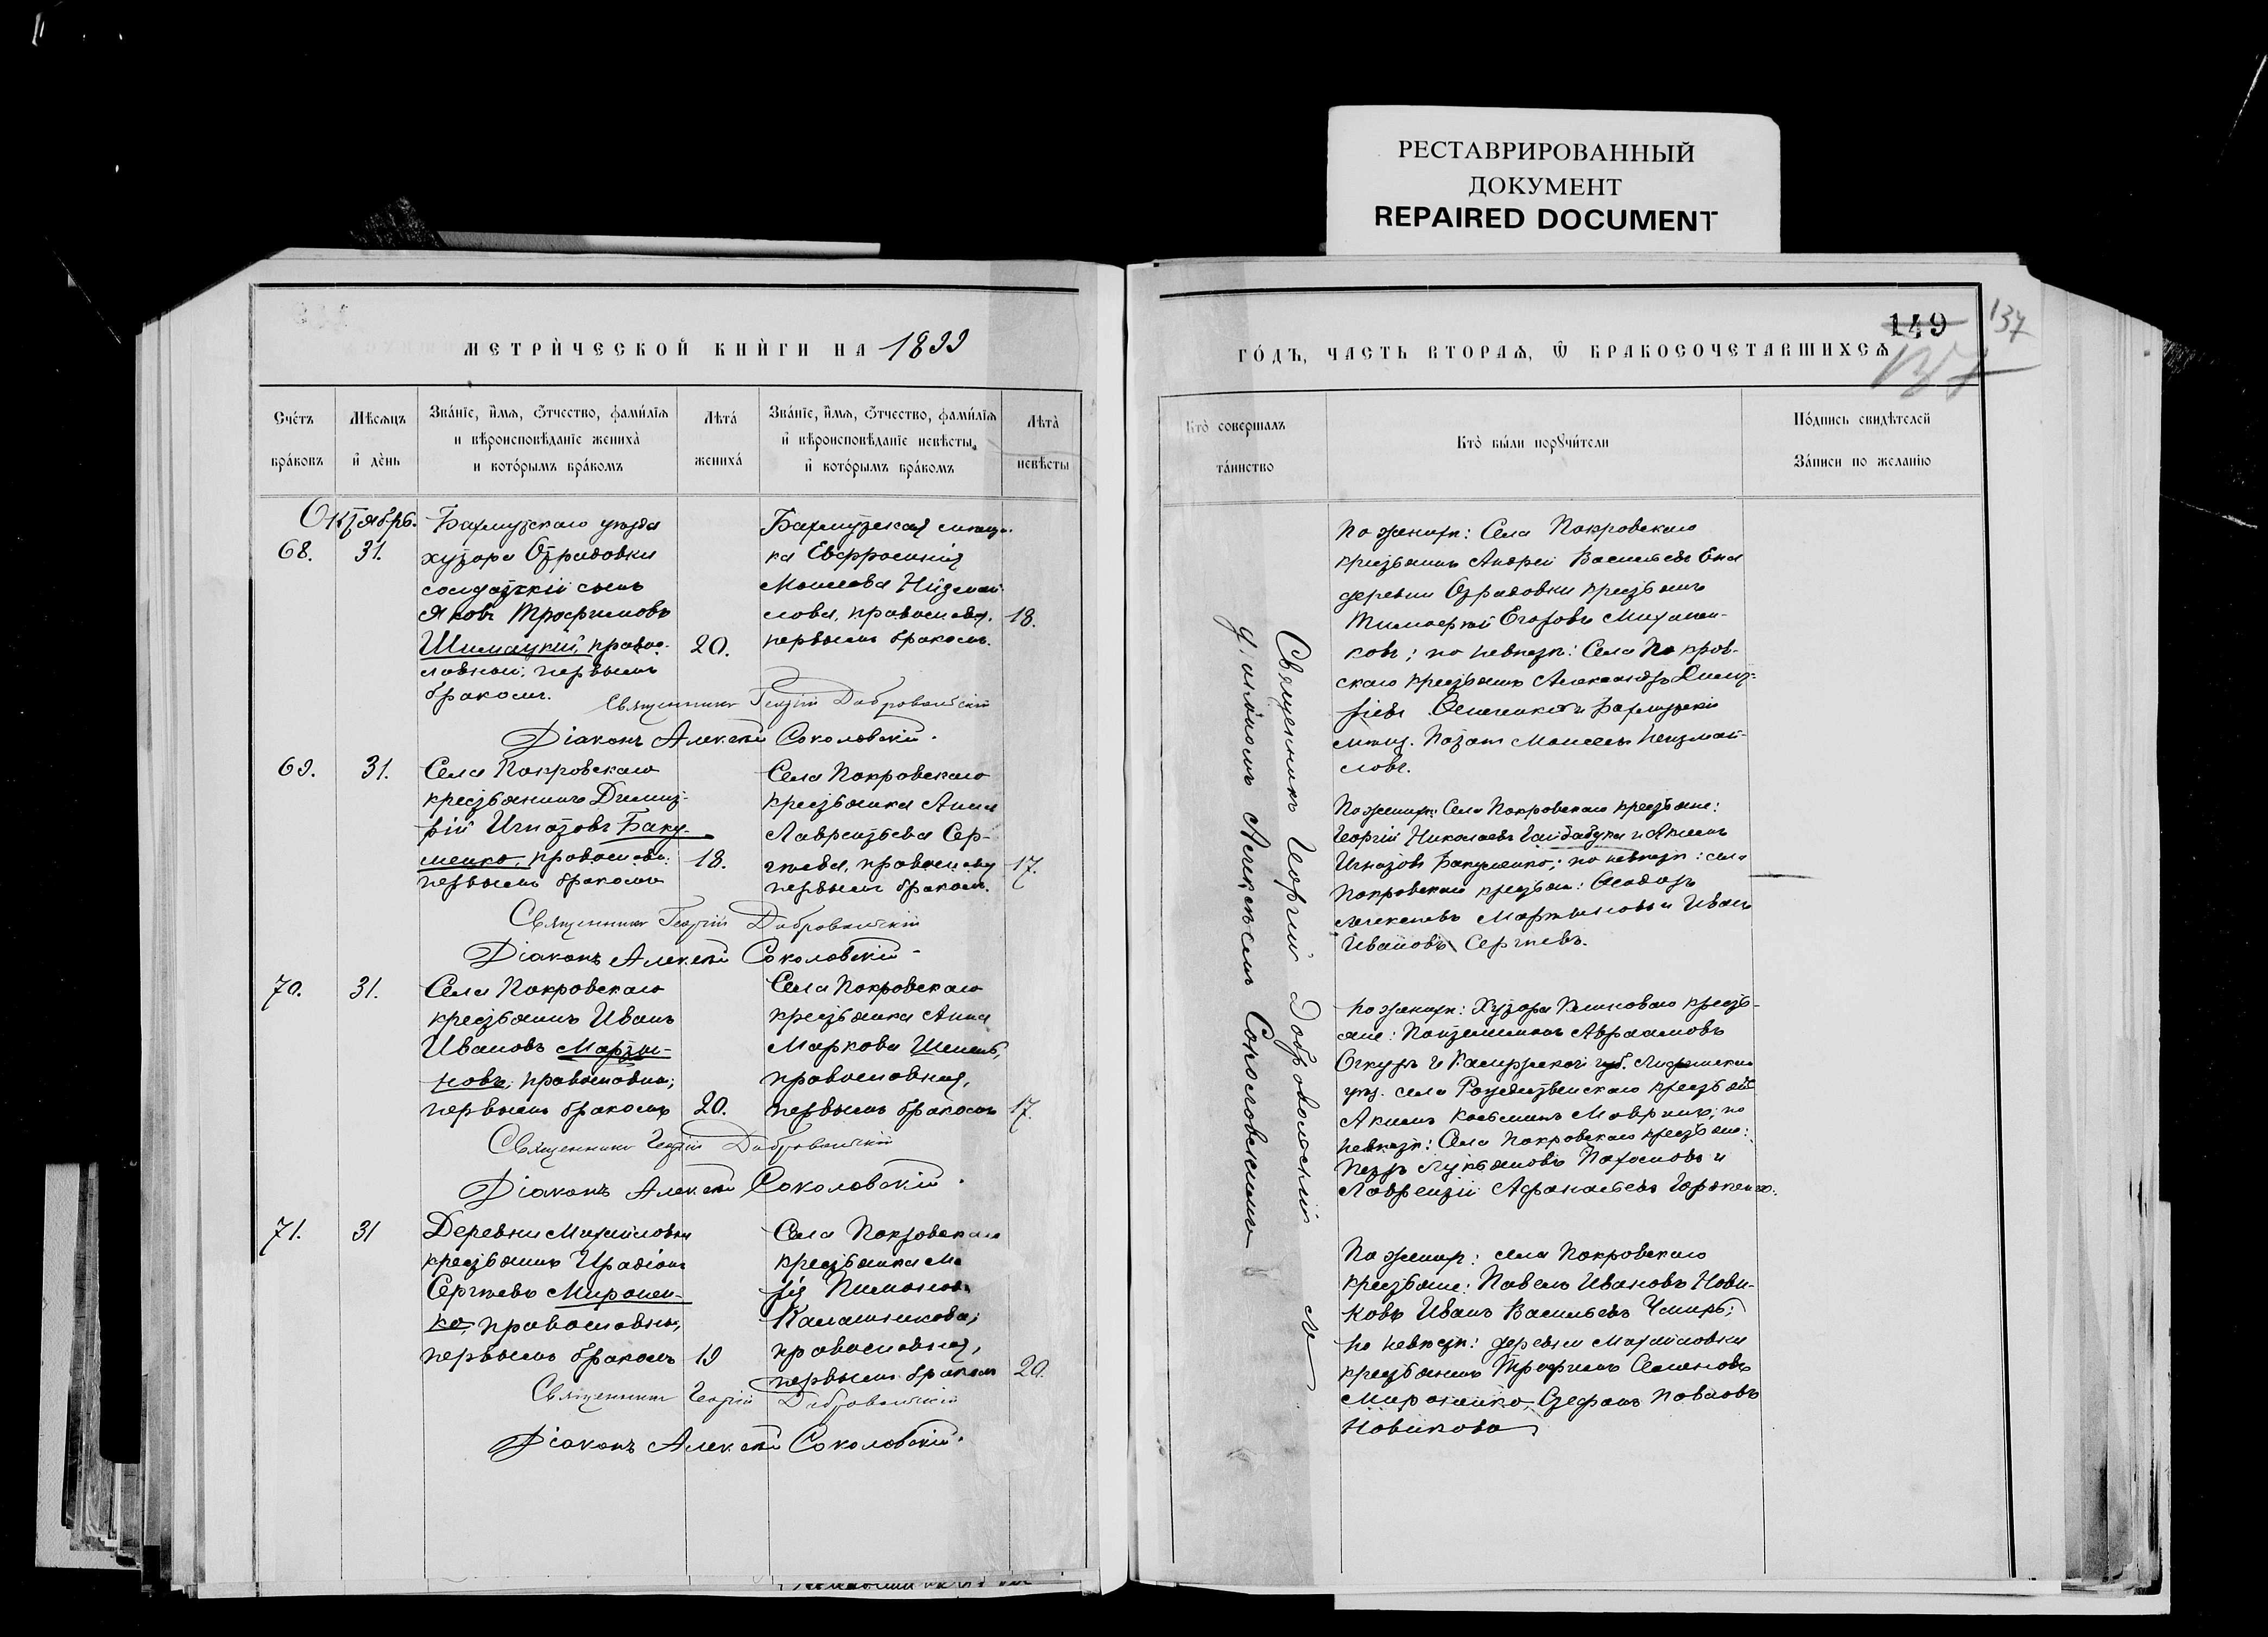 РЕСТАВРИРОВАННЫЙ
ДОКУМЕНТ
REPAIRED DOCUMENT
МЕТРИЧЕСКОЙ КНИГИ НА 1899
Счетъ браковъ
Мѣсяцъ и день
Званіе, имя, отчество, фамилія и вѣроисповѣданіе жениха и которымъ бракомъ
Лѣта жениха
Званіе, имя, отчество, фамилія и вѣроисповѣданіе невѣсты, и которымъ бракомъ
Лѣта невѣсты
Октябрь.
68.
31.
Бахмутскаго уѣзда
хутора Отрадовки
солдатскій сынъ
Яковъ Трофимовъ
Шимацкій, правос-
лавный, первымъ
бракомъ.
20.
Бахмутская мѣщан-
ка Евфросинія
Моисеева Неизмай-
лова, православ.
первымъ бракомъ.
18.
Священникъ Георгій Добровольскій
Діаконъ Алексѣй Соколовскій.
69.
31.
Села Покровскаго
крестьянинъ Димит-
рій Игнатовъ Баку-
менко, православн.
первымъ бракомъ
18.
Села Покровскаго
крестьянка Анна
Лаврентьева Сер-
гѣева, православн
первымъ бракомъ.
17.
Священникъ Георгій Добровольскій
Діаконъ Алексѣй Соколовскій
70.
31.
Села Покровскаго
крестьянинъ Иванъ
Ивановъ Марты-
новъ, православны;
первымъ бракомъ
20.
Села Покровскаго
крестьянка Анна
Маркова
православная,
первымъ бракомъ
17.
Священникъ Георгій Добровольскій
Діаконъ Алексѣй Соколовскій.
71.
31
Деревни Михайловки
крестьянинъ Иродіонъ
Сергѣевъ Миронен-
ко, православны,
первымъ бракомъ
19
Села Покровскаго
крестьянка Ма
рія Пимонова
Калашникова;
православная,
первымъ бракомъ
20.
Священникъ Георгій Добровольскій
Діаконъ Алексѣй Соколовскій.
149
137
137
ГОДЪ, ЧАСТЬ ВТОРАЯ, Ѿ БРАКОСОЧЕТАВШИХСЯ
Кто совершалъ таинство
Кто были поручители
Подпись свидѣтелей записи по желанію
Священникъ Георгій Добровольскій съ
діакономъ Алексѣемъ Соколовскимъ
По женихѣ: Села Покровскаго
крестьянинъ Андрей Васильевъ
деревни Отрадовки крестьянинъ
Тимофей Егоровъ
ковъ; по невѣстѣ: Села Покров-
скаго крестьянинъ Александръ Димит-
ріевъ и Бахмутскій
мѣщ. Моисеевъ Неизмай-
ловъ.
По женихѣ: Села Покровскаго крестьяне:
Георгій Николаевъ Гайдабука и
Игнатовъ Бакуменко; по невѣстѣ: села
Покровскаго крестьян:
Алексѣевъ Мартыновъ и Иванъ
Ивановъ Сергѣевъ.
По женихѣ: Хутора кресть-
яне: Авраамовъ
и губ.
уѣз. села Рождественскаго крестьян
Акимъ по
невѣстѣ: Села Покровскаго крестьяне:
Петръ Лукьяновъ и
Лаврентій Афанасьевъ
По женихѣ: села Покровскаго
крестьяне: Павелъ Ивановъ Нови-
ковъ Иванъ Васильевъ
по невѣстѣ: деревни Михайловки
крестьянинъ Трофимъ Семеновъ
Мироненко, Стефанъ Павловъ
Новиковъ